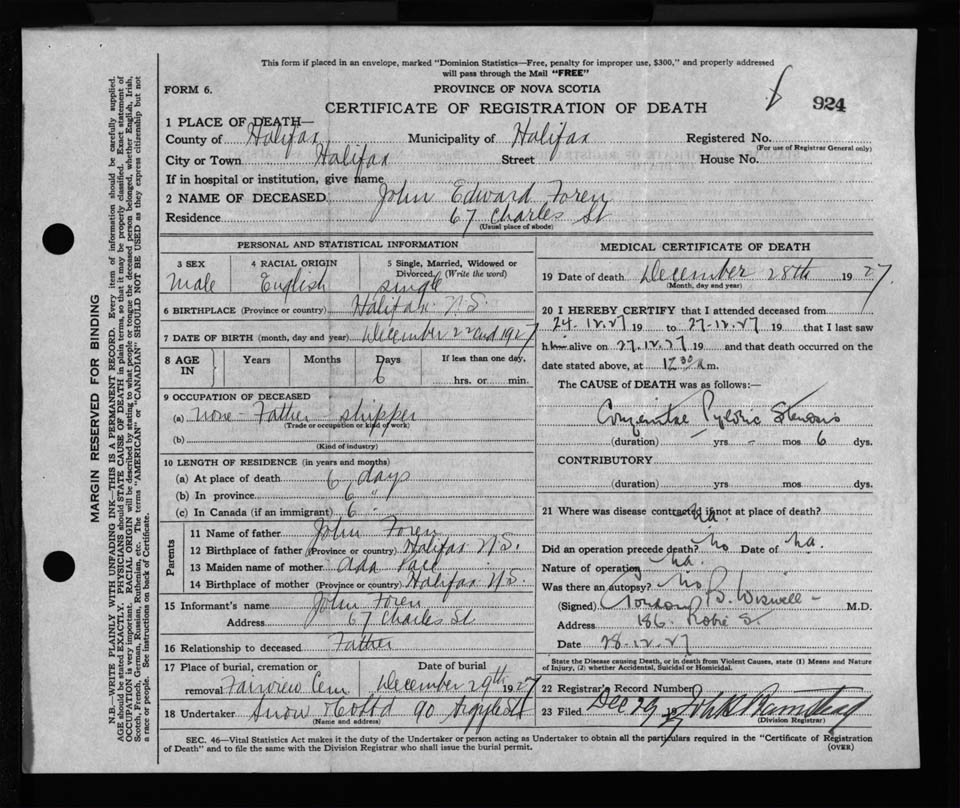 This form if placed in an envelope, marked "Dominion Statistics—Free, penalty for improper use, $300," and properly addressed
will pass through the Mail "FREE"
FORM 6.
PROVINCE OF NOVA SCOTIA
924
CERTIFICATE OF REGISTRATION OF DEATH
1 PLACE OF DEATH—
County of Halifax Municipality of Halifax Registered No.
(For use of Registrar General only)
City or Town Halifax Street House No.
If in hospital or institution, give name
2 NAME OF DECEASED John Edward Foren
Residence 67 Charles St
(Usual place of abode)
PERSONAL AND STATISTICAL INFORMATION
3 SEX 4 RACIAL ORIGIN 5 Single, Married, Widowed or
Divorced. (Write the word)
Male English single
6 BIRTHPLACE (Province or country) Halifax N.S.
7 DATE OF BIRTH (month, day and year) December 22nd 1927
8 AGE IN Years Months Days If less than one day,
6 hrs. or min.
9 OCCUPATION OF DECEASED
(a) none - Father - shipper
(Trade or occupation or kind of work)
(b)
(Kind of industry)
10 LENGTH OF RESIDENCE (in years and months)
(a) At place of death 6 days
(b) In province 6 "
(c) In Canada (if an immigrant) 6 "
Parents
11 Name of father John Foren
12 Birthplace of father (Province or country) Halifax N.S.
13 Maiden name of mother Ada
14 Birthplace of mother (Province or country) Halifax N.S.
15 Informant's name John Foren
Address 67 Charles St
16 Relationship to deceased Father
17 Place of burial, cremation or Date of burial
removal Fairview Cem December 29th 1927
18 Undertaker Snow & Co Ltd 90 Argyle St
(Name and address)
MEDICAL CERTIFICATE OF DEATH
19 Date of death December 28th 1927
(Month, day and year)
20 I HEREBY CERTIFY that I attended deceased from
24.12.27 19 to 27-12-27 19 that I last saw
him alive on 27.12.27 19 and that death occurred on the
date stated above, at 12 30 a m.
The CAUSE OF DEATH was as follows:—
Congenital Pyloric Stenosis
(duration) - yrs - mos 6 dys.
CONTRIBUTORY
(duration) yrs mos dys.
21 Where was disease contracted if not at place of death? na.
Did an operation precede death? no Date of na.
Nature of operation na.
Was there an autopsy? no
(Signed) B. Wiswell - M.D.
Address 186 Robie St.
Date 28.12.27
State the Disease causing Death, or in death from Violent Causes, state (1) Means and Nature
of Injury, (2) whether Accidental, Suicidal or Homicidal.
22 Registrar's Record Number
23 Filed Dec 29 1927
(Division Registrar)
SEC. 46—Vital Statistics Act makes it the duty of the Undertaker or person acting as Undertaker to obtain all the particulars required in the "Certificate of Registration
of Death" and to file the same with the Division Registrar who shall issue the burial permit. (OVER)
MARGIN RESERVED FOR BINDING
N.B.—WRITE PLAINLY WITH UNFADING INK—THIS IS A PERMANENT RECORD. Every item of information should be carefully supplied.
AGE should be stated EXACTLY. PHYSICIANS should STATE CAUSE OF DEATH in plain terms, so that it may be properly classified. Exact statement of
OCCUPATION is very important. RACIAL ORIGIN will be described by stating to what people or tongue the deceased person belonged, whether English, Irish,
Scotch, French, German, Russian, Ruthenian, etc. The terms "AMERICAN" or "CANADIAN" SHOULD NOT BE USED as they express citizenship but not
a race or people. See instructions on back of Certificate.